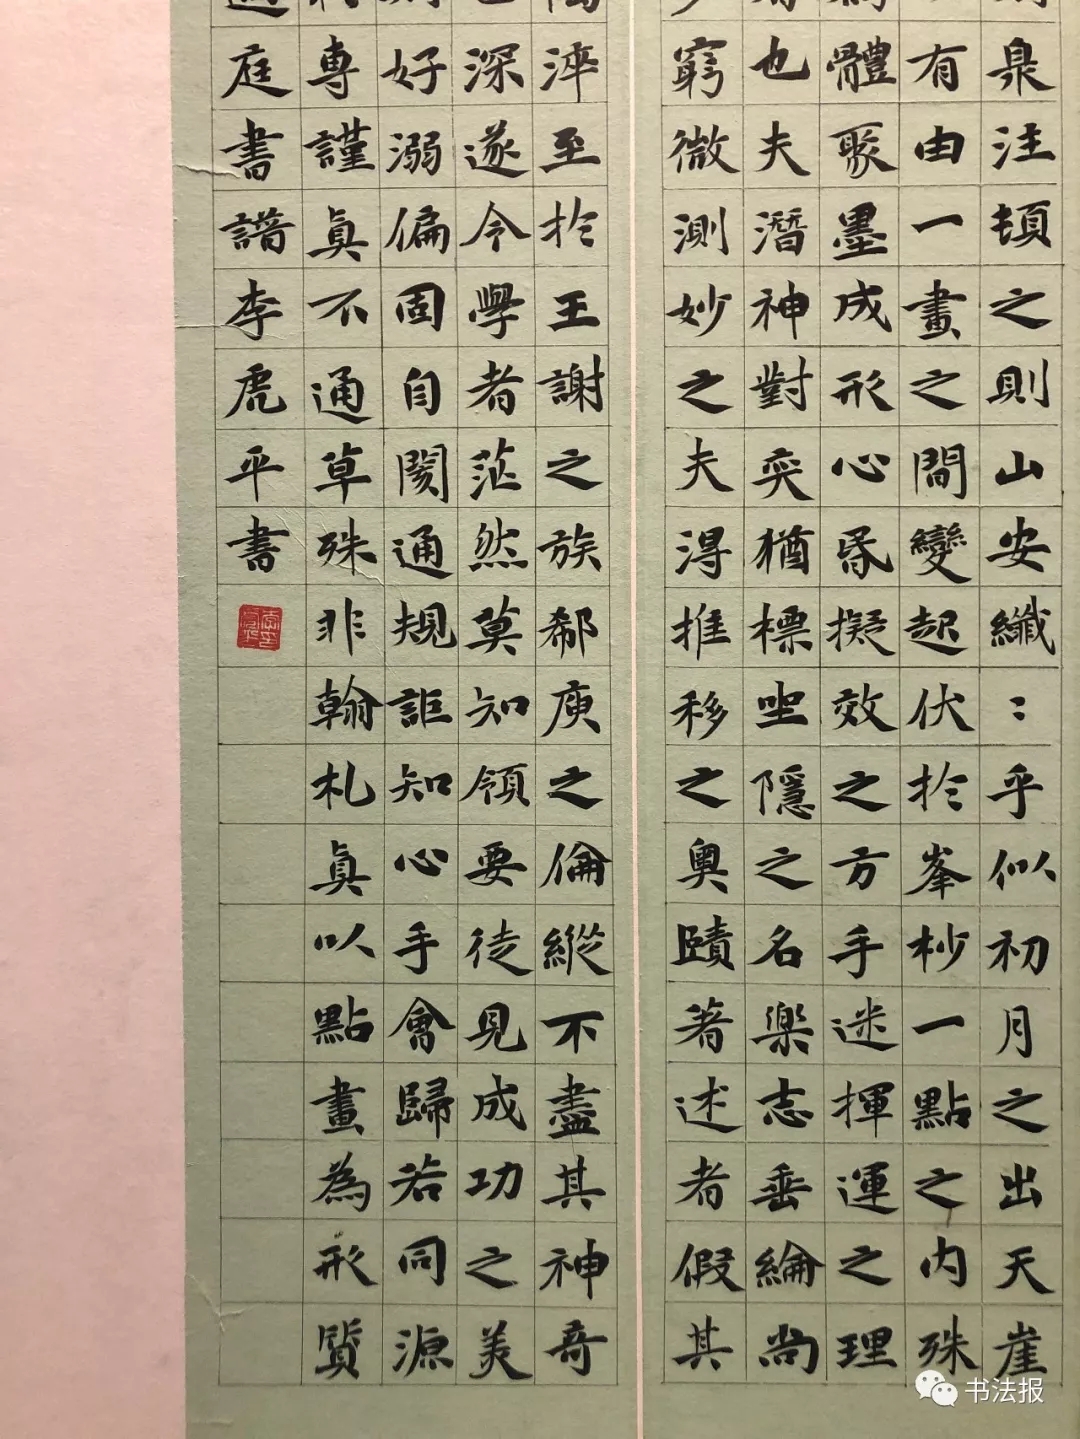 泉注頓之則山安纖〻乎似初月之出天崖
有由一畫之間變起伏於峯杪一點之内殊
體聚墨成形心昏擬效之方手迷揮運之理
也夫潛神對奕猶標坐隱之名樂志垂綸尚
窮微測妙之夫得推移之奧賾著述者假其
淬至於王謝之族郗庾之倫縱不盡其神奇
深遂令學者茫然莫知領要徒見成功之美
好溺偏固自閡通規詎知心手會歸若同源
專謹真不通草殊非翰札真以點畫為形質
過庭書譜李虎平書
书法报